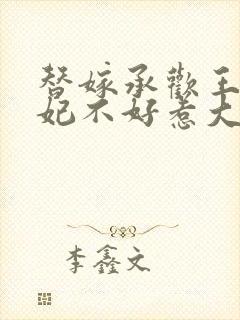 替嫁承歡王
妃不好惹大
李鑫文